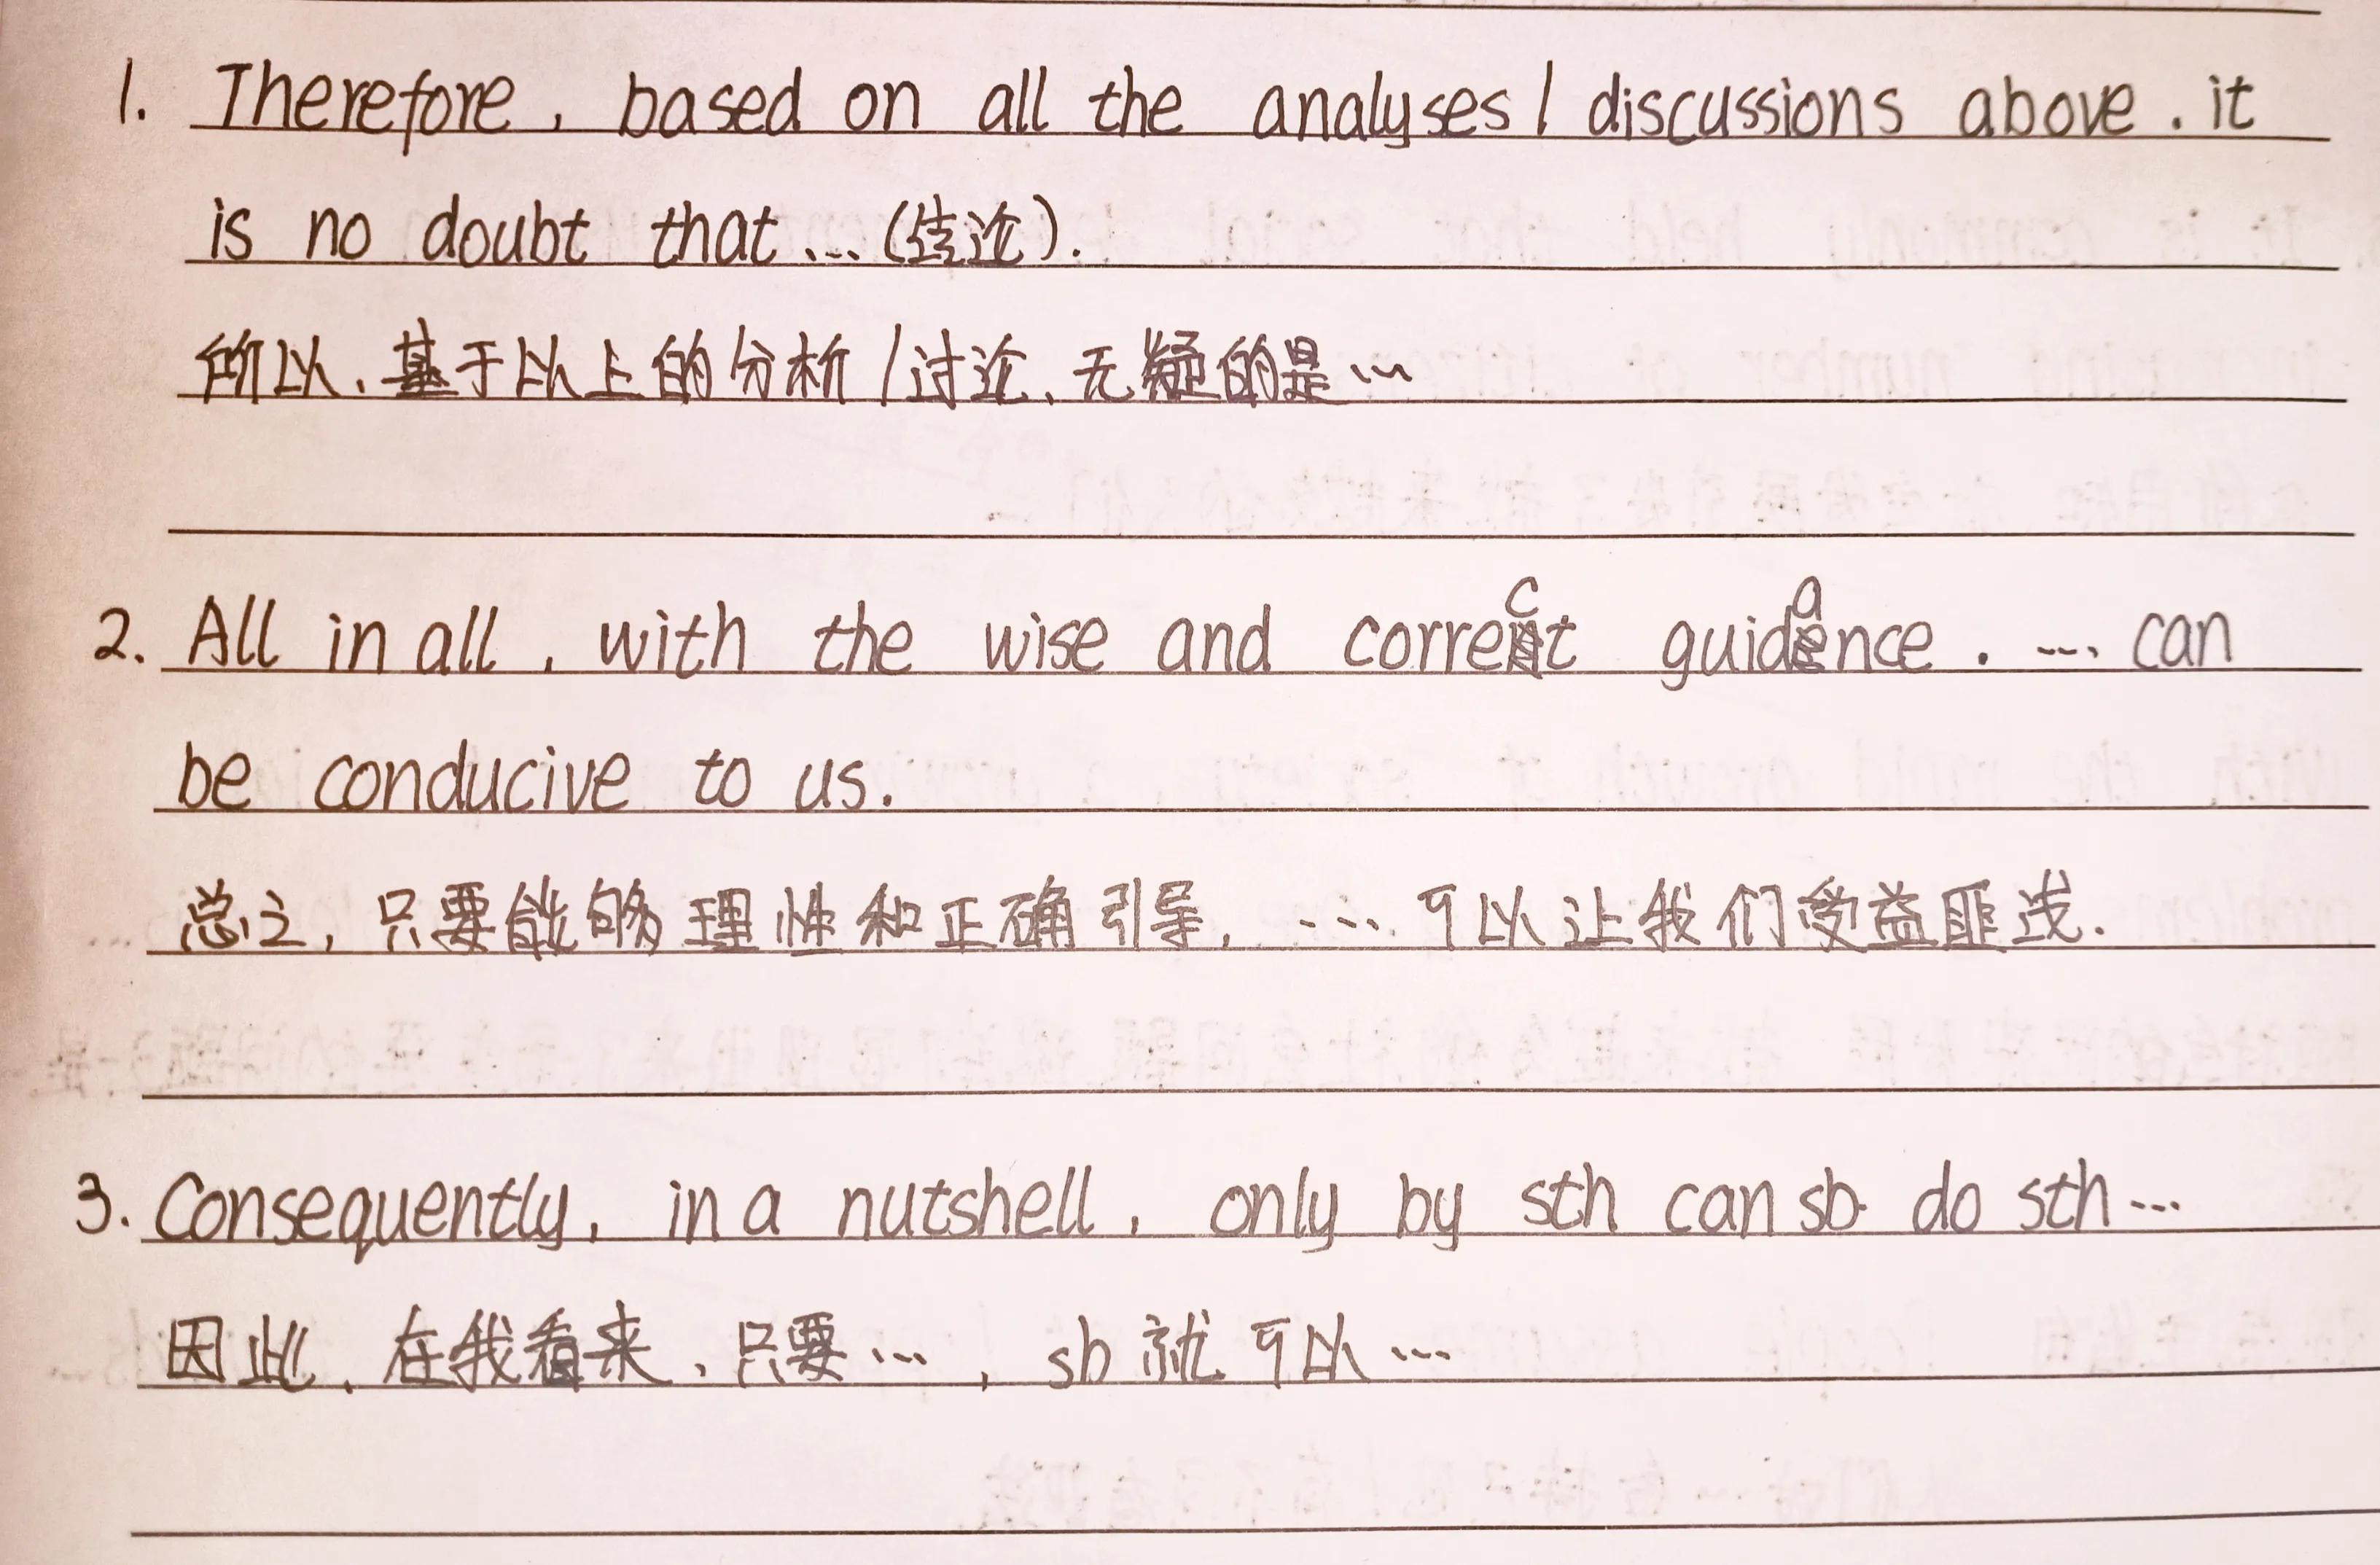 1. Therefore, based on all the analyses / discussions above, it
is no doubt that ... (结论).
所以、基于以上的分析 / 讨论、无疑的是…
2. All in all, with the wise and correct guidance. ... can
be conducive to us.
总之, 只要能够理性和正确引导, ... 可以让我们受益匪浅.
3. Consequently, in a nutshell, only by sth can sb do sth ...
因此、在我看来、只要 … , sb 就可以 …